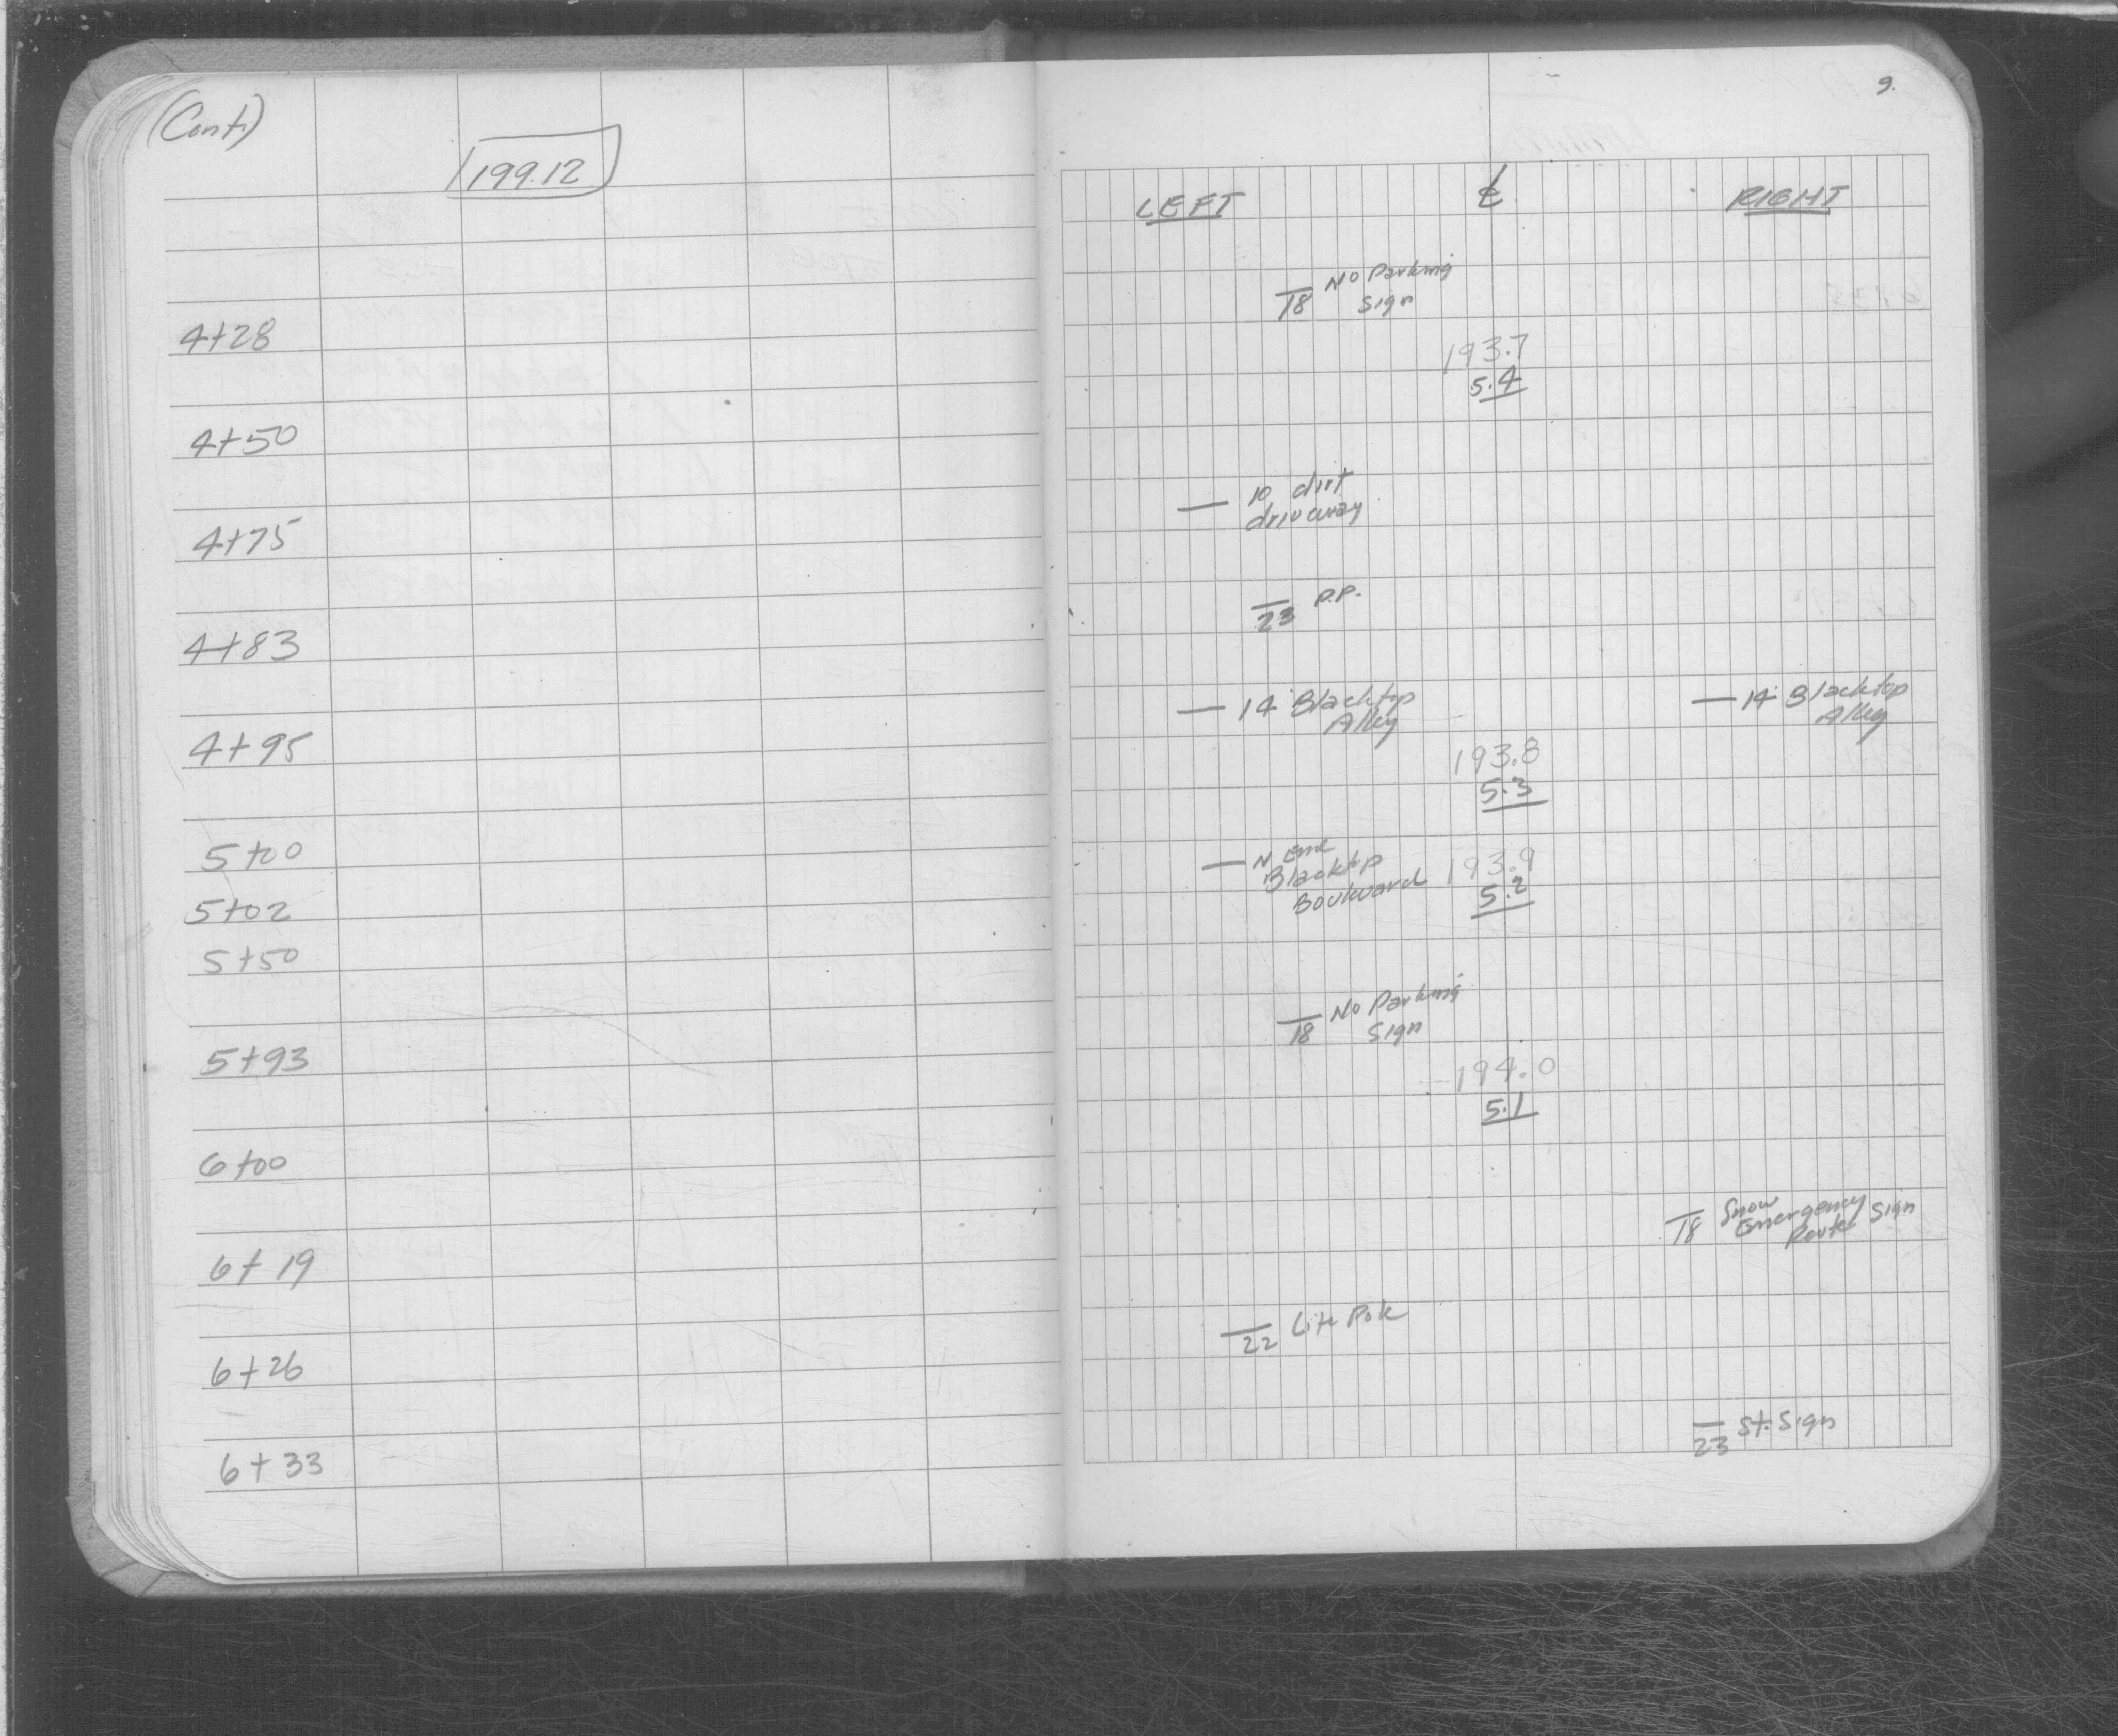 (Cont.)
199.12
4+28
4+50
4+75
4+83
4+95
5+00
5+02
5+50
5+93
6+00
6+19
6+26
6+33
9.
LEFT ℄ RIGHT
No Parking
18 Sign
193.7
5.4
— 10' dirt
driveway
23 P.P.
— 14' Blacktop
Alley
— 14' Blacktop
Alley
193.8
5.3
— N End
Blacktop
Boulevard
193.9
5.2
No Parking
18 Sign
194.0
5.1
18 Snow
Emergency
Route Sign
22 Lite Pole
23 St. Sign